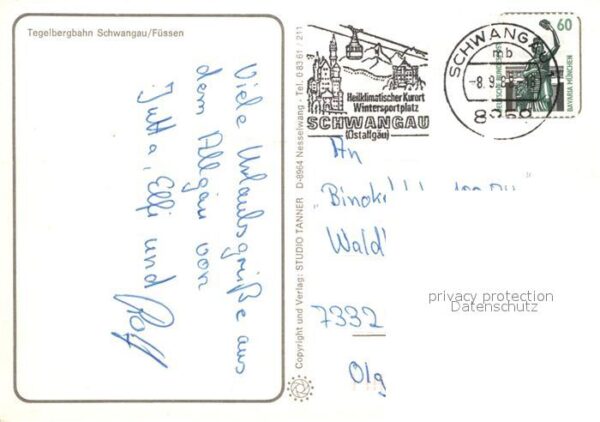 Tegelbergbahn Schwangau/Füssen
Viele Urlaubsgrüße aus
dem Allgäu von
Jutta, Elfi und
Copyright und Verlag: STUDIO TANNER D-8964 Nesselwang - Tel. 0 83 61 / 211
Heilklimatischer Kurort
Wintersportplatz
SCHWANGAU
(Ostallgäu)
SCHWANGAU
mb
-8.9.8
60
DEUTSCHE BUNDESPOST
BAVARIA MÜNCHEN
An
Wald
7332
privacy protection
Datenschutz